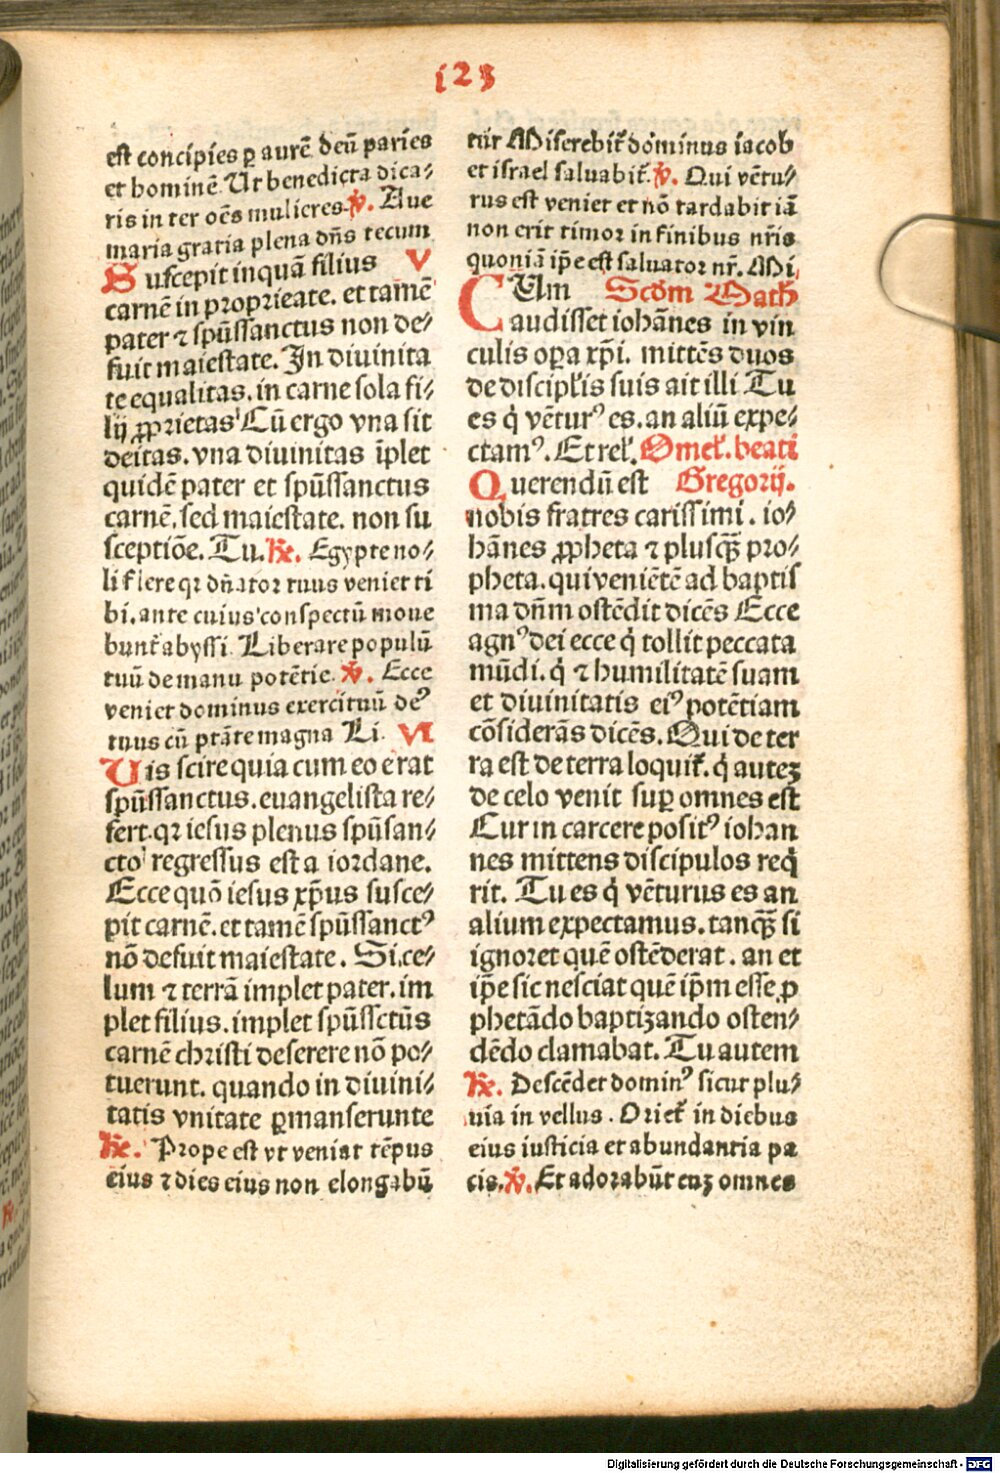 123
est concipies ꝑ aurē deū paries
et hominē Ut benedicta dica⸗
ris in ter oēs mulieres ℣. Aue
maria gratia plena dn̄s tecum
Suscepit inquā filius V
carnē in proprieate. et tamē
pater ⁊ spūssanctus non de⸗
fuit maiestate. In diuinita
te equalitas. in carne sola fi⸗
lij ꝓprietas Cū ergo vna sit
deitas. vna diuinitas īplet
quidē pater et spūssanctus
carnē. sed maiestate. non su
sceptiōe. Tu. ℟. Egypte no⸗
li flere qꝛ dn̄ator tuus veniet ti
bi. ante cuius conspectū moue
bunt᷑ abyssi Liberare populū
tuū de manu potētie ℣. Ecce
veniet dominus exercituū deꝰ
tuus cū ptāte magna Li. VI
Uis scire quia cum eo erat
spūssanctus. euangelista re⸗
fert. qꝛ iesus plenus spūsan⸗
cto regressus est a iordane.
Ecce quō iesus xp̄us susce⸗
pit carnē. et tamē spūssanctꝰ
nō defuit maiestate. Si. ce⸗
lum ⁊ terrā implet pater. im
plet filius. implet spūssctūs
carnē christi deserere nō po⸗
tuerunt. quando in diuini⸗
tatis vnitate ꝑmanserunte
℟. Prope est vt veniat tēpus
eius ⁊ dies eius non elongabū
tur Miserebit᷑ dominus iacob
et israel saluabit᷑. ℣. Qui vētu⸗
rus est veniet et nō tardabit iā
non erit timor in finibus nr̄is
quoniā ip̄e est saluator nr̄. Mi
CUm Scd̄m Math
audisset iohānes in vin
culis oꝑa xp̄i. mittēs duos
de discipl̓is suis ait illi Tu
es q̇ vēturꝰ es. an aliū expe⸗
ctamꝰ. Et rel̓. Omel̓. beati
Querendū est Gregorij.
nobis fratres carissimi. io⸗
hānes ꝓpheta ⁊ plusqꝫ̄ pro⸗
pheta. qui veniētē ad baptis
ma dn̄m ostēdit dicēs Ecce
agnꝰ dei ecce q̇ tollit peccata
mūdi. q̇ ⁊ humilitatē suam
et diuinitatis eiꝰ potētiam
cōsiderās dicēs. Qui de ter
ra est de terra loquit᷑. q̇ auteꝫ
de celo venit suꝑ omnes est
Cur in carcere positꝰ iohan
nes mittens discipulos req̇
rit. Tu es q̇ vēturus es an
alium expectamus. tanqꝫ̄ si
ignoret quē ostēderat. an et
ip̄e sic nesciat quē ip̄m esse ꝓ
phetādo baptizando osten⸗
dēdo clamabat. Tu autem
℟. Descēdet dominꝰ sicut plu⸗
uia in vellus. Oriet᷑ in diebus
eius iusticia et abundantia pa
cis. ℣. Et adorabūt euꝫ omnes
Digitalisierung gefördert durch die Deutsche Forschungsgemeinschaft - DFG